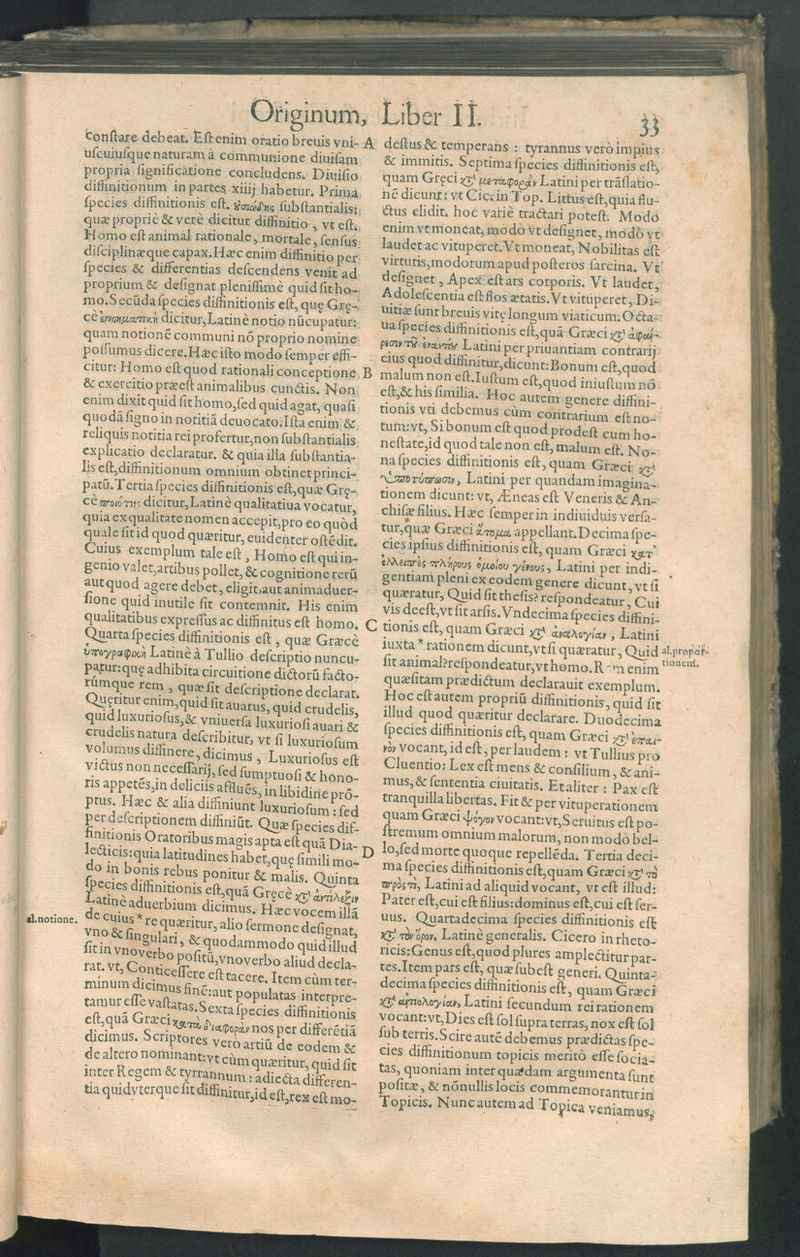 Originum, Liber II.
33
conſtare debeat. Eſt enim oratio breuis vni-
uſcuiuſque naturam à communione diuiſam
propria ſignificatione concludens. Diuiſio
diffinitionum in partes xiiij habetur. Prima
ſpecies diffinitionis eſt. οὐσιώδης ſubſtantialis:
quæ propriè & verè dicitur diffinitio, vt eſt.
Homo eſt animal rationale, mortale, ſenſus
diſciplinæque capax. Hæc enim diffinitio per
ſpecies & differentias deſcendens venit ad
proprium & deſignat pleniſſimè quid ſit ho-
mo. Secũda ſpecies diffinitionis eſt, quę GRę-
cè ἐννοηματικὴ dicitur, Latinè notio nũcupatur:
quam notionẽ communi nõ proprio nomine
poſſumus dicere. Hæc iſto modo ſemper effi-
citur: Homo eſt quod rationali conceptione
& exercitio præeſt animalibus cunctis. Non
enim dixit quid ſit homo, ſed quid agat, quaſi
quodã ſigno in notitiã deuocato. Iſta enim &
reliquis notitia rei profertur, non ſubſtantialis
explicatio declaratur. & quia illa ſubſtantia-
lis eſt, diffinitionum omnium obtinet princi-
patũ. Tertia ſpecies diffinitionis eſt, quæ Grę-
cè ποιότης dicitur, Latinè qualitatiua vocatur,
quia ex qualitate nomen accepit, pro eo quòd
quale ſit id quod quæritur, euidenter oſtẽdit.
Cuius exemplum tale eſt, Homo eſt qui in-
genio valet, artibus pollet, & cognitione rerũ
aut quod agere debet, eligit: aut animaduer-
ſione quid inutile ſit contemnit. His enim
qualitatibus expreſſus ac diffinitus eſt homo.
Quarta ſpecies diffinitionis eſt, quæ Græcè
ὑπογραφικὴ Latinè à Tullio deſcriptio nuncu-
patur: quę adhibita circuitione dictorũ facto-
rúmque rem, quæ ſit deſcriptione declarat.
Quęritur enim, quid ſit auarus, quid crudelis,
quid luxurioſus, & vniuerſa luxurioſi auari &
crudelis natura deſcribitur, vt ſi luxurioſum
volumus diffinere, dicimus, Luxurioſus eſt
victus non neceſſarij, ſed ſumptuoſi & hono-
ris appetẽs, in deliciis afflués, in libidine prõ-
ptus. Hæc & alia diffiniunt luxurioſum: ſed
per deſcriptionem diffiniũt. Quæ ſpecies dif-
finitionis Oratoribus magis apta eſt quã Dia-
lecticis: quia latitudines habet, quę ſimili mo-
do in bonis rebus ponitur & malis. Quinta
ſpecies diffinitionis eſt, quã Grecè κατ' ἀντίλεξιν
Latinè aduerbium dicimus. Hæc vocem illã
de cuius * re quæritur, alio ſermone deſignat,
al. notione.
vno & ſingulari, & quodammodo quid illud
ſit in vno verbo poſitũ, vno verbo aliud decla-
rat. vt, Conticeſſere eſt tacere. Item cùm ter-
minum dicimus finẽ: aut populatas interpre-
tamur eſſe vaſtatas. Sexta ſpecies diffinitionis
eſt, quã Græci κατὰ διαφορὰν nos per differẽtiã
dicimus. Scriptores verò artiũ de eodem &
de altero nominant: vt cùm quæritur, quid ſit
inter Regem & tyrrannum: adiecta differen-
tia quid vterque ſit diffinitur, id eſt, rex eſt mo-
A
B
C
D
deſtus & temperans: tyrannus verò impius
& immitis. Septima ſpecies diffinitionis eſt,
quam Gręci κατὰ μεταφορὰν Latini per trãſlatio-
nẽ dicunt: vt Cic. in Top. Littus eſt, quia flu-
ctus elidit. hoc variè tractari poteſt. Modò
enim vt moneat, modò vt deſignet, modò vt
laudet ac vituperet. Vt moneat, Nobilitas eſt
virtutis, modorum apud poſteros ſarcina. Vt
deſignet, Apex eſt ars corporis. Vt laudet,
Adoleſcentia eſt flos ætatis. Vt vituperet, Di-
uitiæ ſunt breuis vitę longum viaticum. Octa-
ua ſpecies diffinitionis eſt, quã Græci κατ' ἀφαί-
ρεσιν τοῦ ἐναντίου Latini per priuantiam contrarij
eius quod diffinitur, dicunt: Bonum eſt, quod
malum non eſt. Iuſtum eſt, quod iniuſtum nõ
eſt, & his ſimilia. Hoc autem genere diffini-
tionis vti debemus cùm contrarium eſt no-
tum: vt, Si bonum eſt quod prodeſt cum ho-
neſtate, id quod tale non eſt, malum eſt. No-
na ſpecies diffinitionis eſt, quam Græci καθ'
ὑποτύπωσιν, Latini per quandam imagina-
tionem dicunt: vt, Æneas eſt Veneris & An-
chiſæ filius. Hæc ſemper in indiuiduis verſa-
tur, quæ Græci ἄτομα appellant. Decima ſpe-
cies ipſius diffinitionis eſt, quam Græci κατ'
ἐλλειπὲς πλήρους ὁμοίου γένους, Latini per indi-
gentiam pleni ex eodem genere dicunt, vt ſi
quæratur, Quid ſit theſis? reſpondeatur, Cui
vis deeſt, vt ſit arſis. Vndecima ſpecies diffini-
tionis eſt, quam Græci κατ' ἀναλογίαν, Latini
iuxta * rationem dicunt, vt ſi quæratur, Quid
al. propor-
tionem.
ſit animal? reſpondeatur, vt homo. Rem enim
quæſitam prædictum declarauit exemplum.
Hoc eſt autem propriũ diffinitionis, quid ſit
illud quod quæritur declarare. Duodecima
ſpecies diffinitionis eſt, quam Græci κατ' ἔπαι-
νον vocant, id eſt, per laudem: vt Tullius pro
Cluentio: Lex eſt mens & conſilium, & ani-
mus, & ſententia ciuitatis. Et aliter: Pax eſt
tranquilla libertas. Fit & per vituperationem
quam Græci ψόγον vocant: vt, Seruitus eſt po-
ſtremum omnium malorum, non modò bel-
lo, ſed morte quoque repellẽda. Tertia deci-
ma ſpecies diffinitionis eſt, quam Græci κατὰ τὸ
πρός τι, Latini ad aliquid vocant, vt eſt illud:
Pater eſt, cui eſt filius: dominus eſt, cui eſt ſer-
uus. Quartadecima ſpecies diffinitionis eſt
κατὰ τὸν ὅρον, Latinè generalis. Cicero in rheto-
ricis: Genus eſt, quod plures amplectitur par-
tes. Item pars eſt, quæ ſubeſt generi. Quinta-
decima ſpecies diffinitionis eſt, quam Græci
κατ' αἰτιολογίαν, Latini ſecundum rei rationem
vocant: vt, Dies eſt ſol ſupra terras, nox eſt ſol
ſub terris. Scire autẽ debemus prædictas ſpe-
cies diffinitionum topicis meritò eſſe ſocia-
tas, quoniam inter quædam argumenta ſunt
poſitæ, & nõnullis locis commemorantur in
Topicis. Nunc autem ad Topica veniamus,